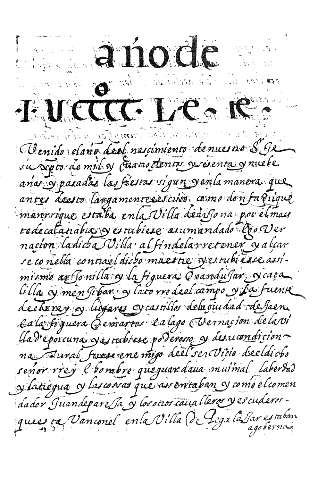 año de
I U CCCC L e - ix -
Venido el año del nascimiento de nuestro S. Je
su xpto de mil y quatroçientos y sesenta y nuebe
años y pasadas las fiestas sigun y en la manera que
antes desto largamente es escrito como don fadrique
manrrique estaba en la Villa de por el maes
tre de calatraba y estubiese a su mandado e go Ver
naçion la dicha Villa al fin de la rretener y alçar
se con ella contra el dicho maestre y estubiese asi
mismo arjonilla y la figuera y caça
lilla y menjibar y la torre del campo y la fuente
del rrey y lugares y castillos de la çiudad de Jaen
e a la figuera de martos e a la go Vernaçion de la Vi
lla de porcuna y estubiese poderoso y de su condiçion
natural fuese enemigo del serViçio del dicho
señor rrey e hombre que guardava mui mal la bertad
y la tregua y las cosas que asentaban y como el comen
dador Juan de pareja y los otros cavalleros y escuderos
questa Van con el en la Villa de estaban
a gobernaçion